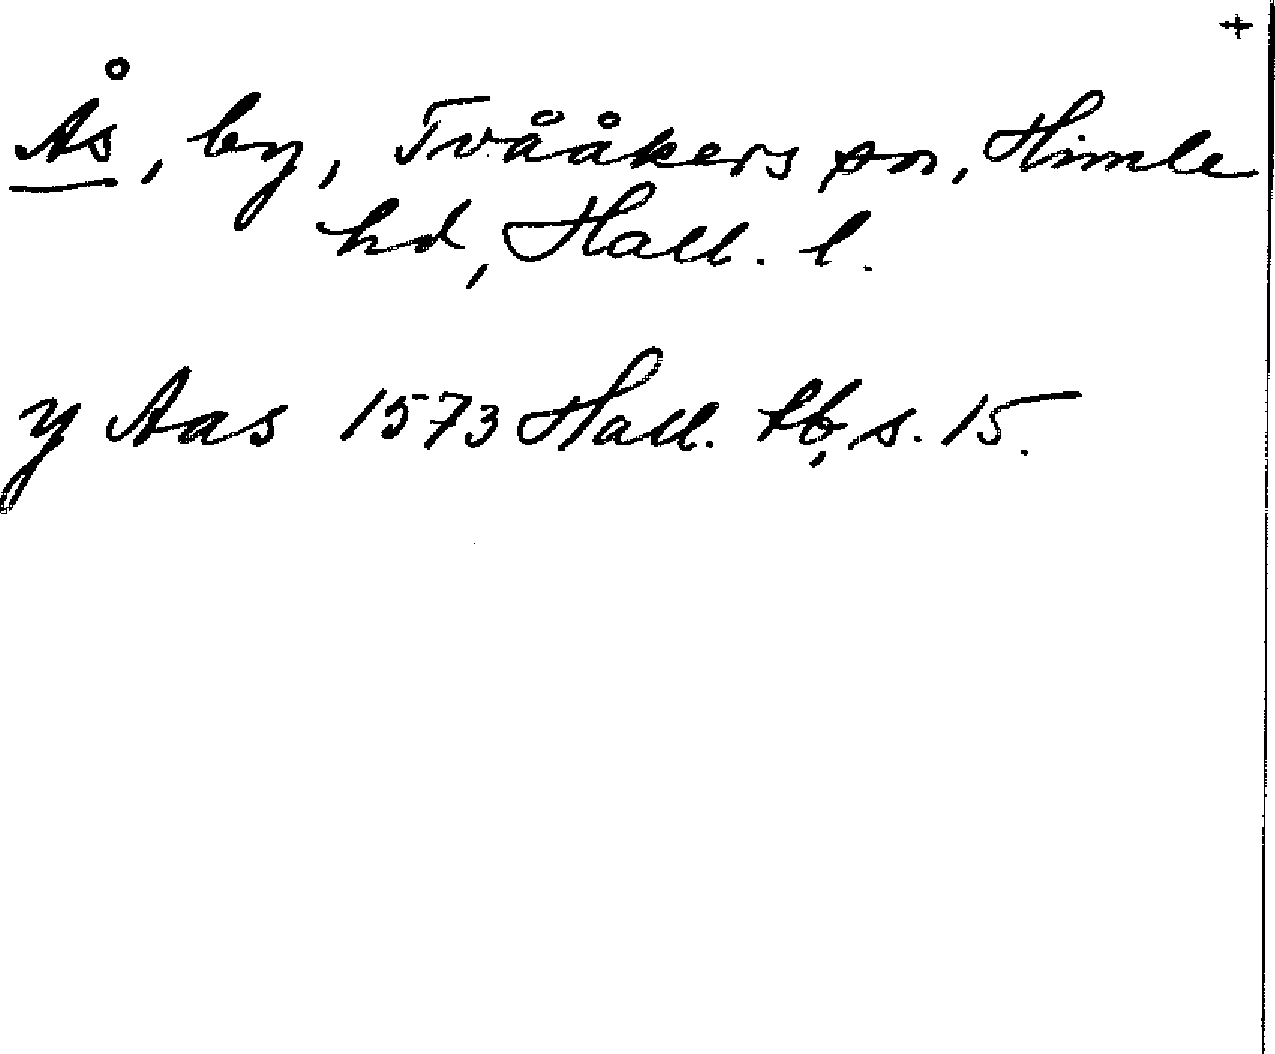 +
Ås, by, Tvååkers sn, Himle
hd, Hall. l.
y Aas 1573 Hall. tb, s. 15.